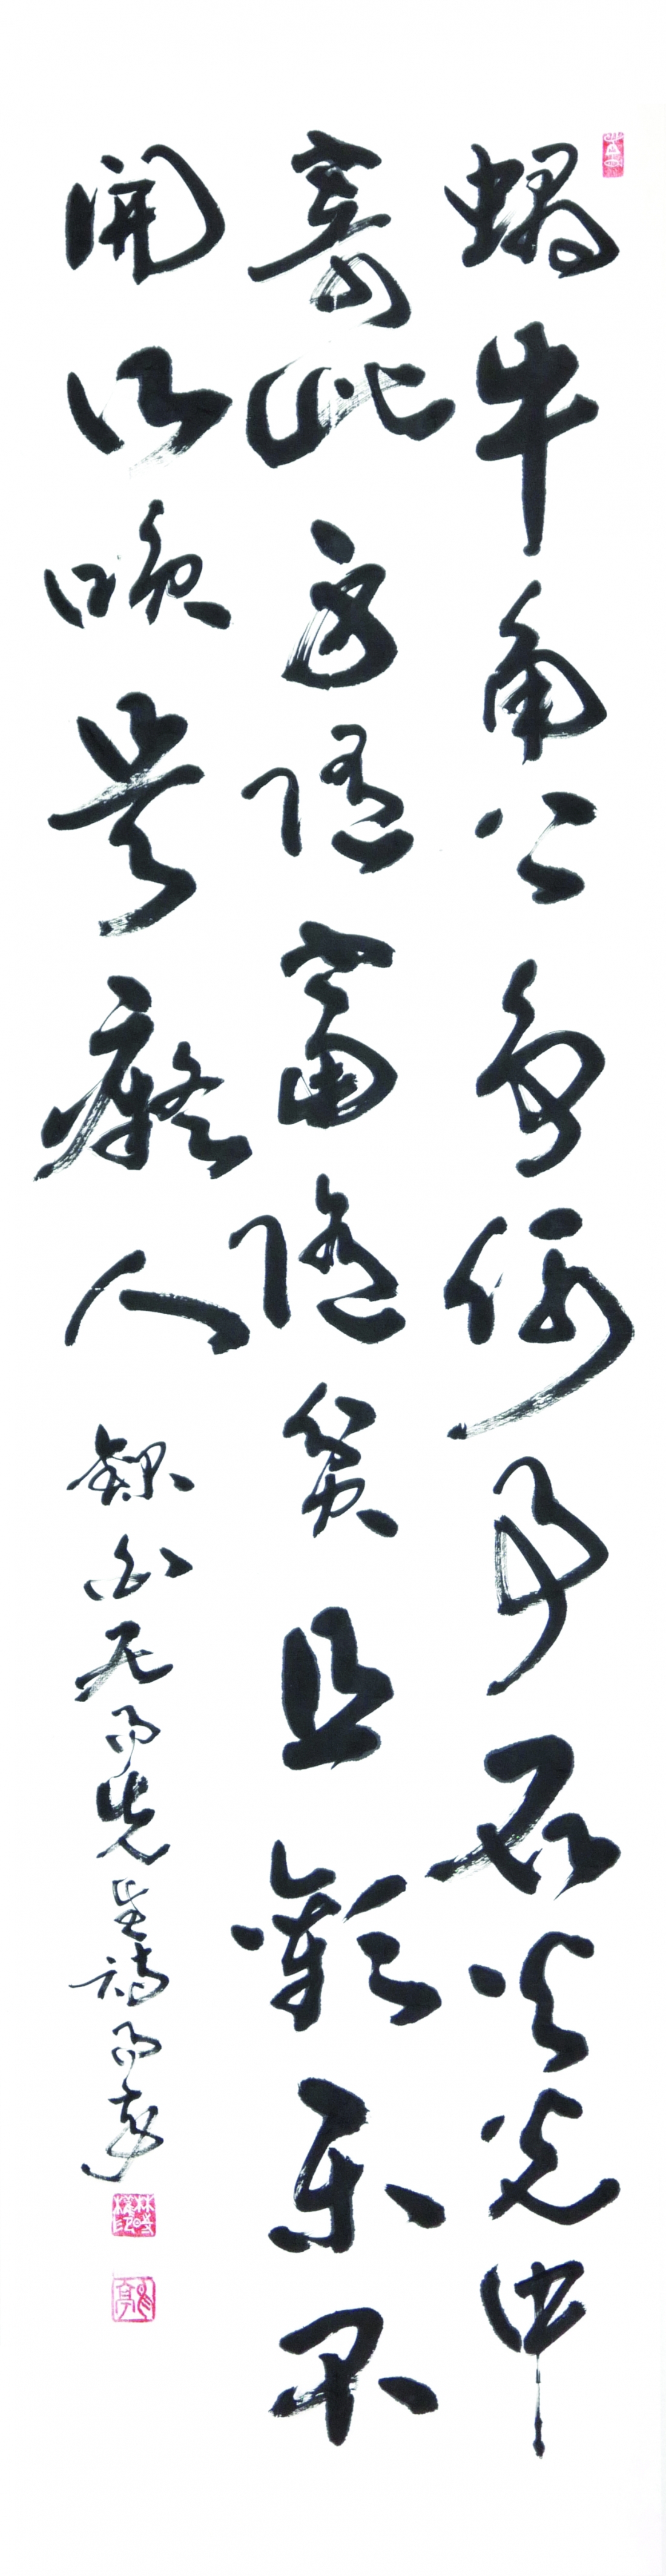 蝸牛角上爭何事石火光中
寄此身隨富隨貧且歡樂不
開口咲是癡人
録白居易先生詩